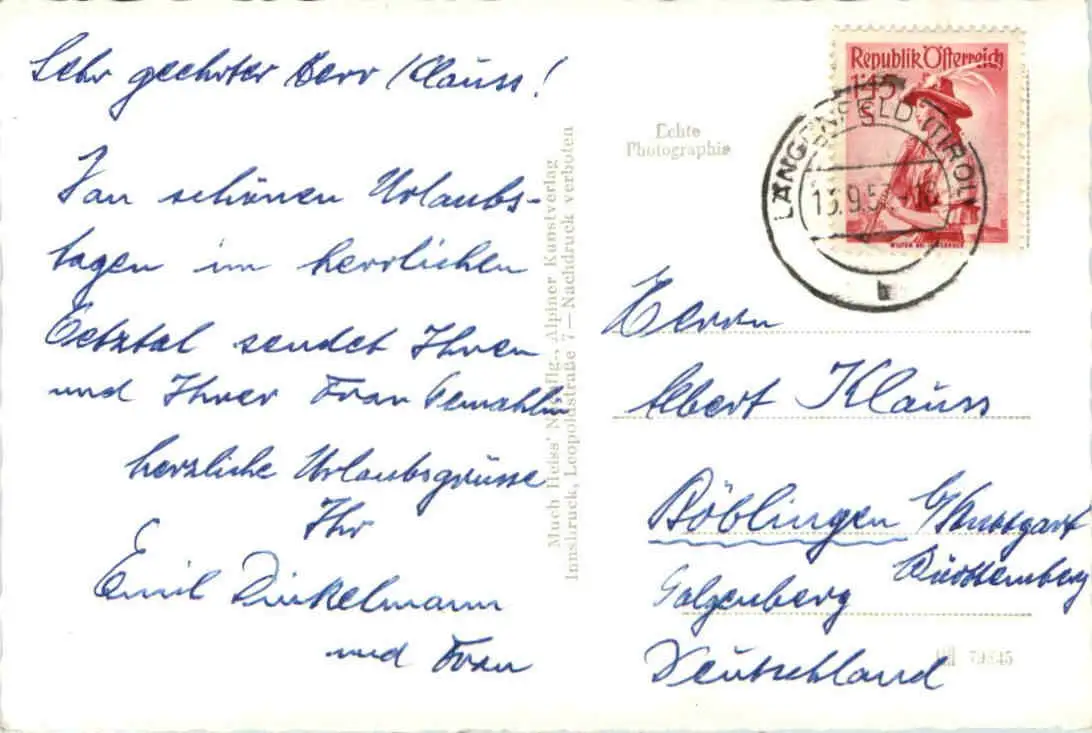 Sehr geehrter Herr Klauss!
Von schönen Urlaubs-
tagen im herrlichen
Oetztal sendet Ihnen
und Ihrer Frau Gemahlin
herzliche Urlaubsgrüsse
Ihr
Emil Dinkelmann
und Frau
Much Heiss' Nachflg., Alpiner Kunstverlag
Innsbruck, Leopoldstraße 7 — Nachdruck verboten
Echte
Photographie
Republik Österreich
1.45
S
LÄNGENFELD (TIROL)
13.9.5
b
Herrn
Albert Klauss
Böblingen b/Stuttgart
Württemberg
Galgenberg
Deutschland